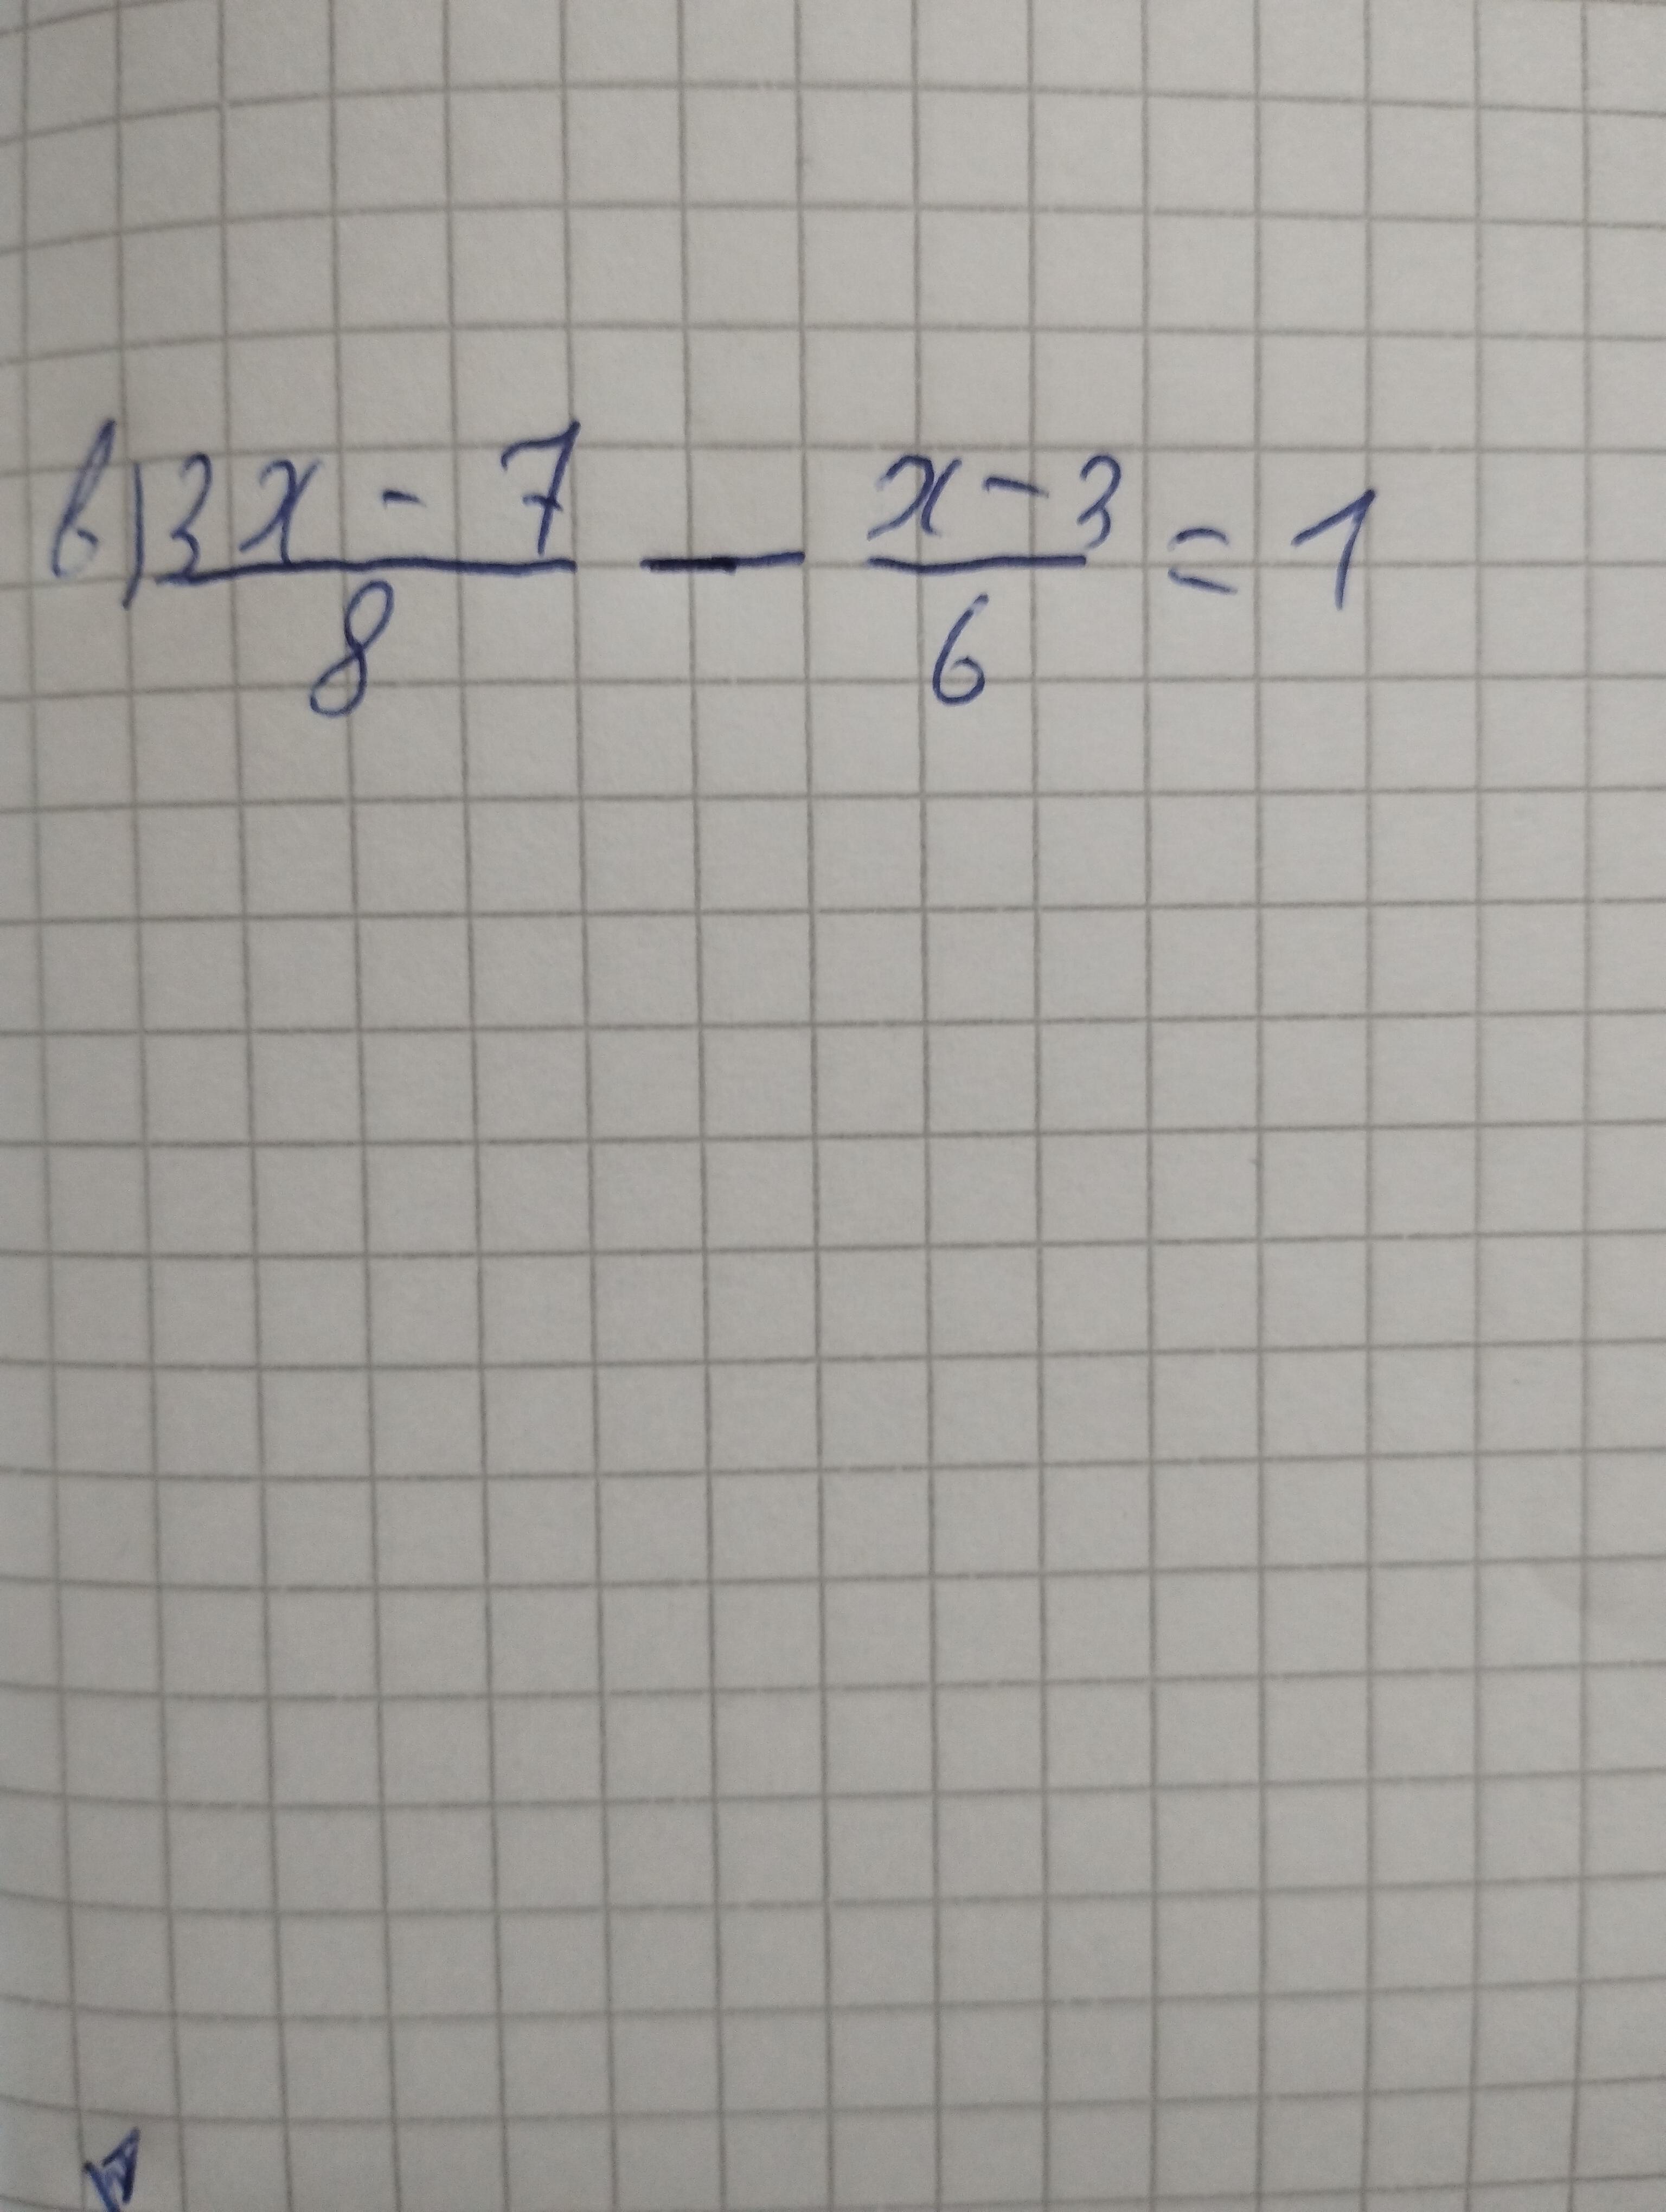 в) (3x - 7)/8 — (x - 3)/6 = 1